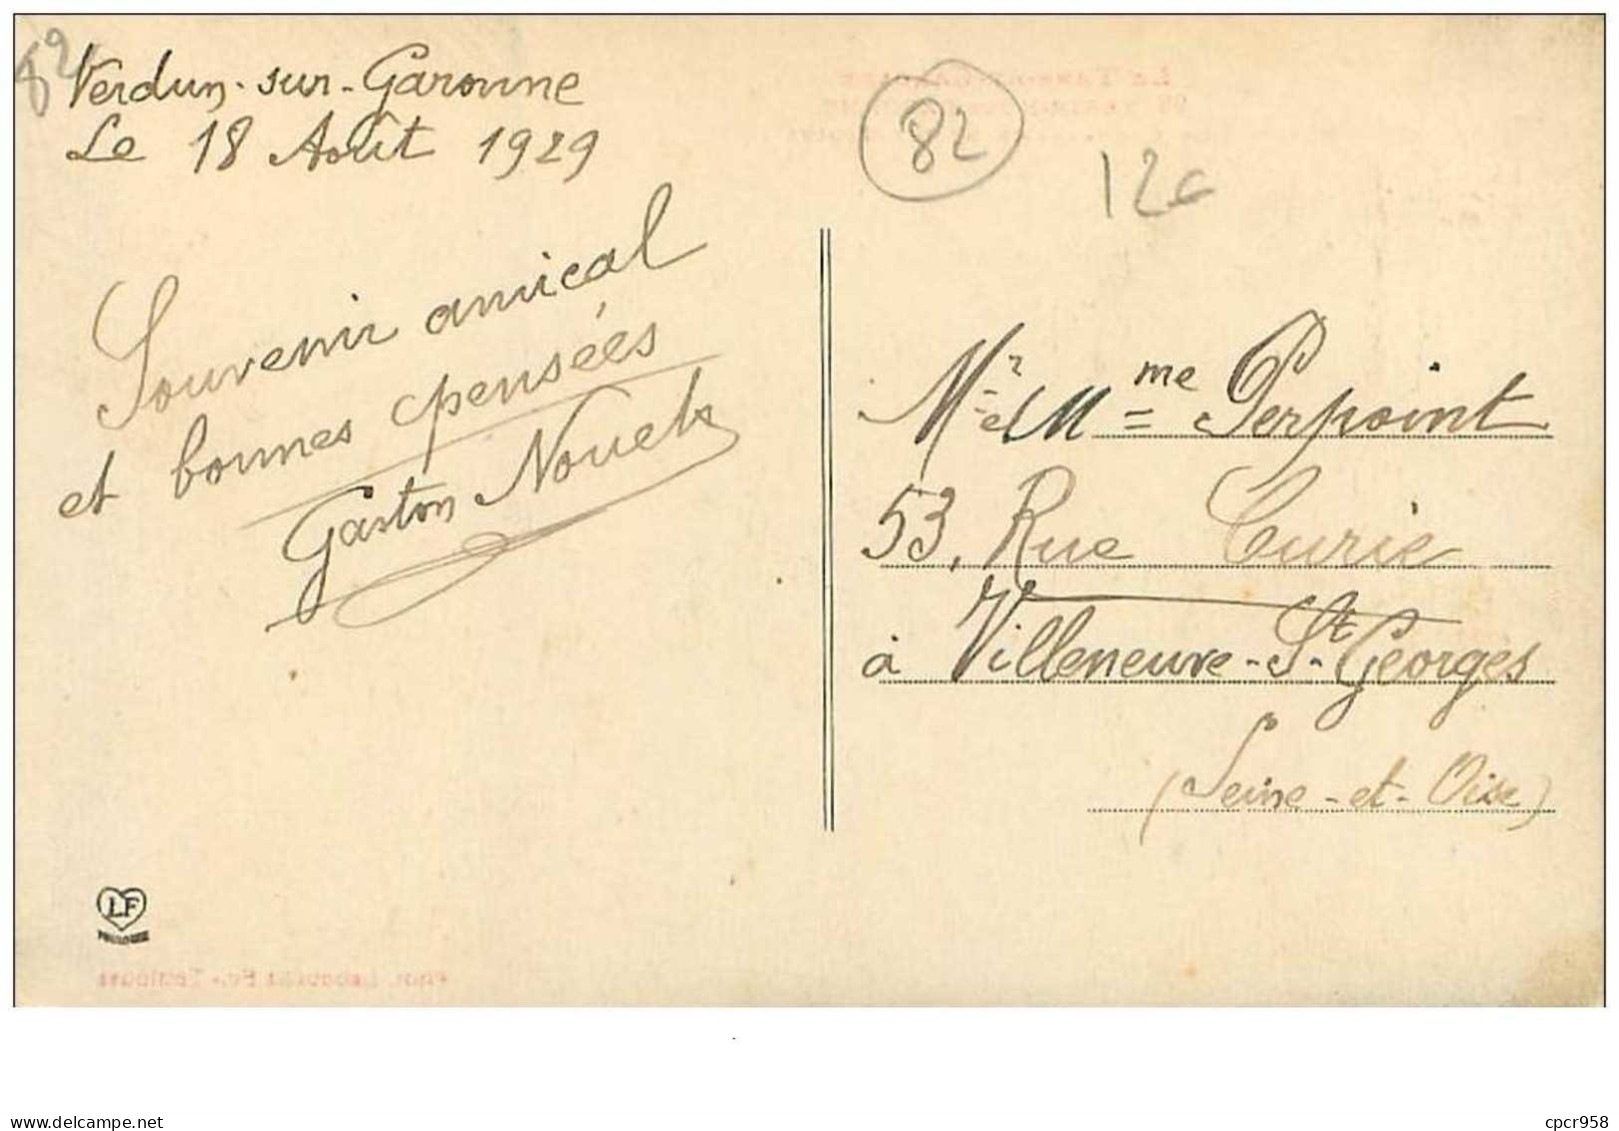 82
Verdun-sur-Garonne
Le 18 Août 1929
Souvenir amical
et bonnes pensées
Gaston
82
12€
Mr et Mme Perpoint
53, Rue Curie
à Villeneuve-St-Georges
(Seine-et-Oise)
LF
TOULOUSE
www.delcampe.net
cpcr958